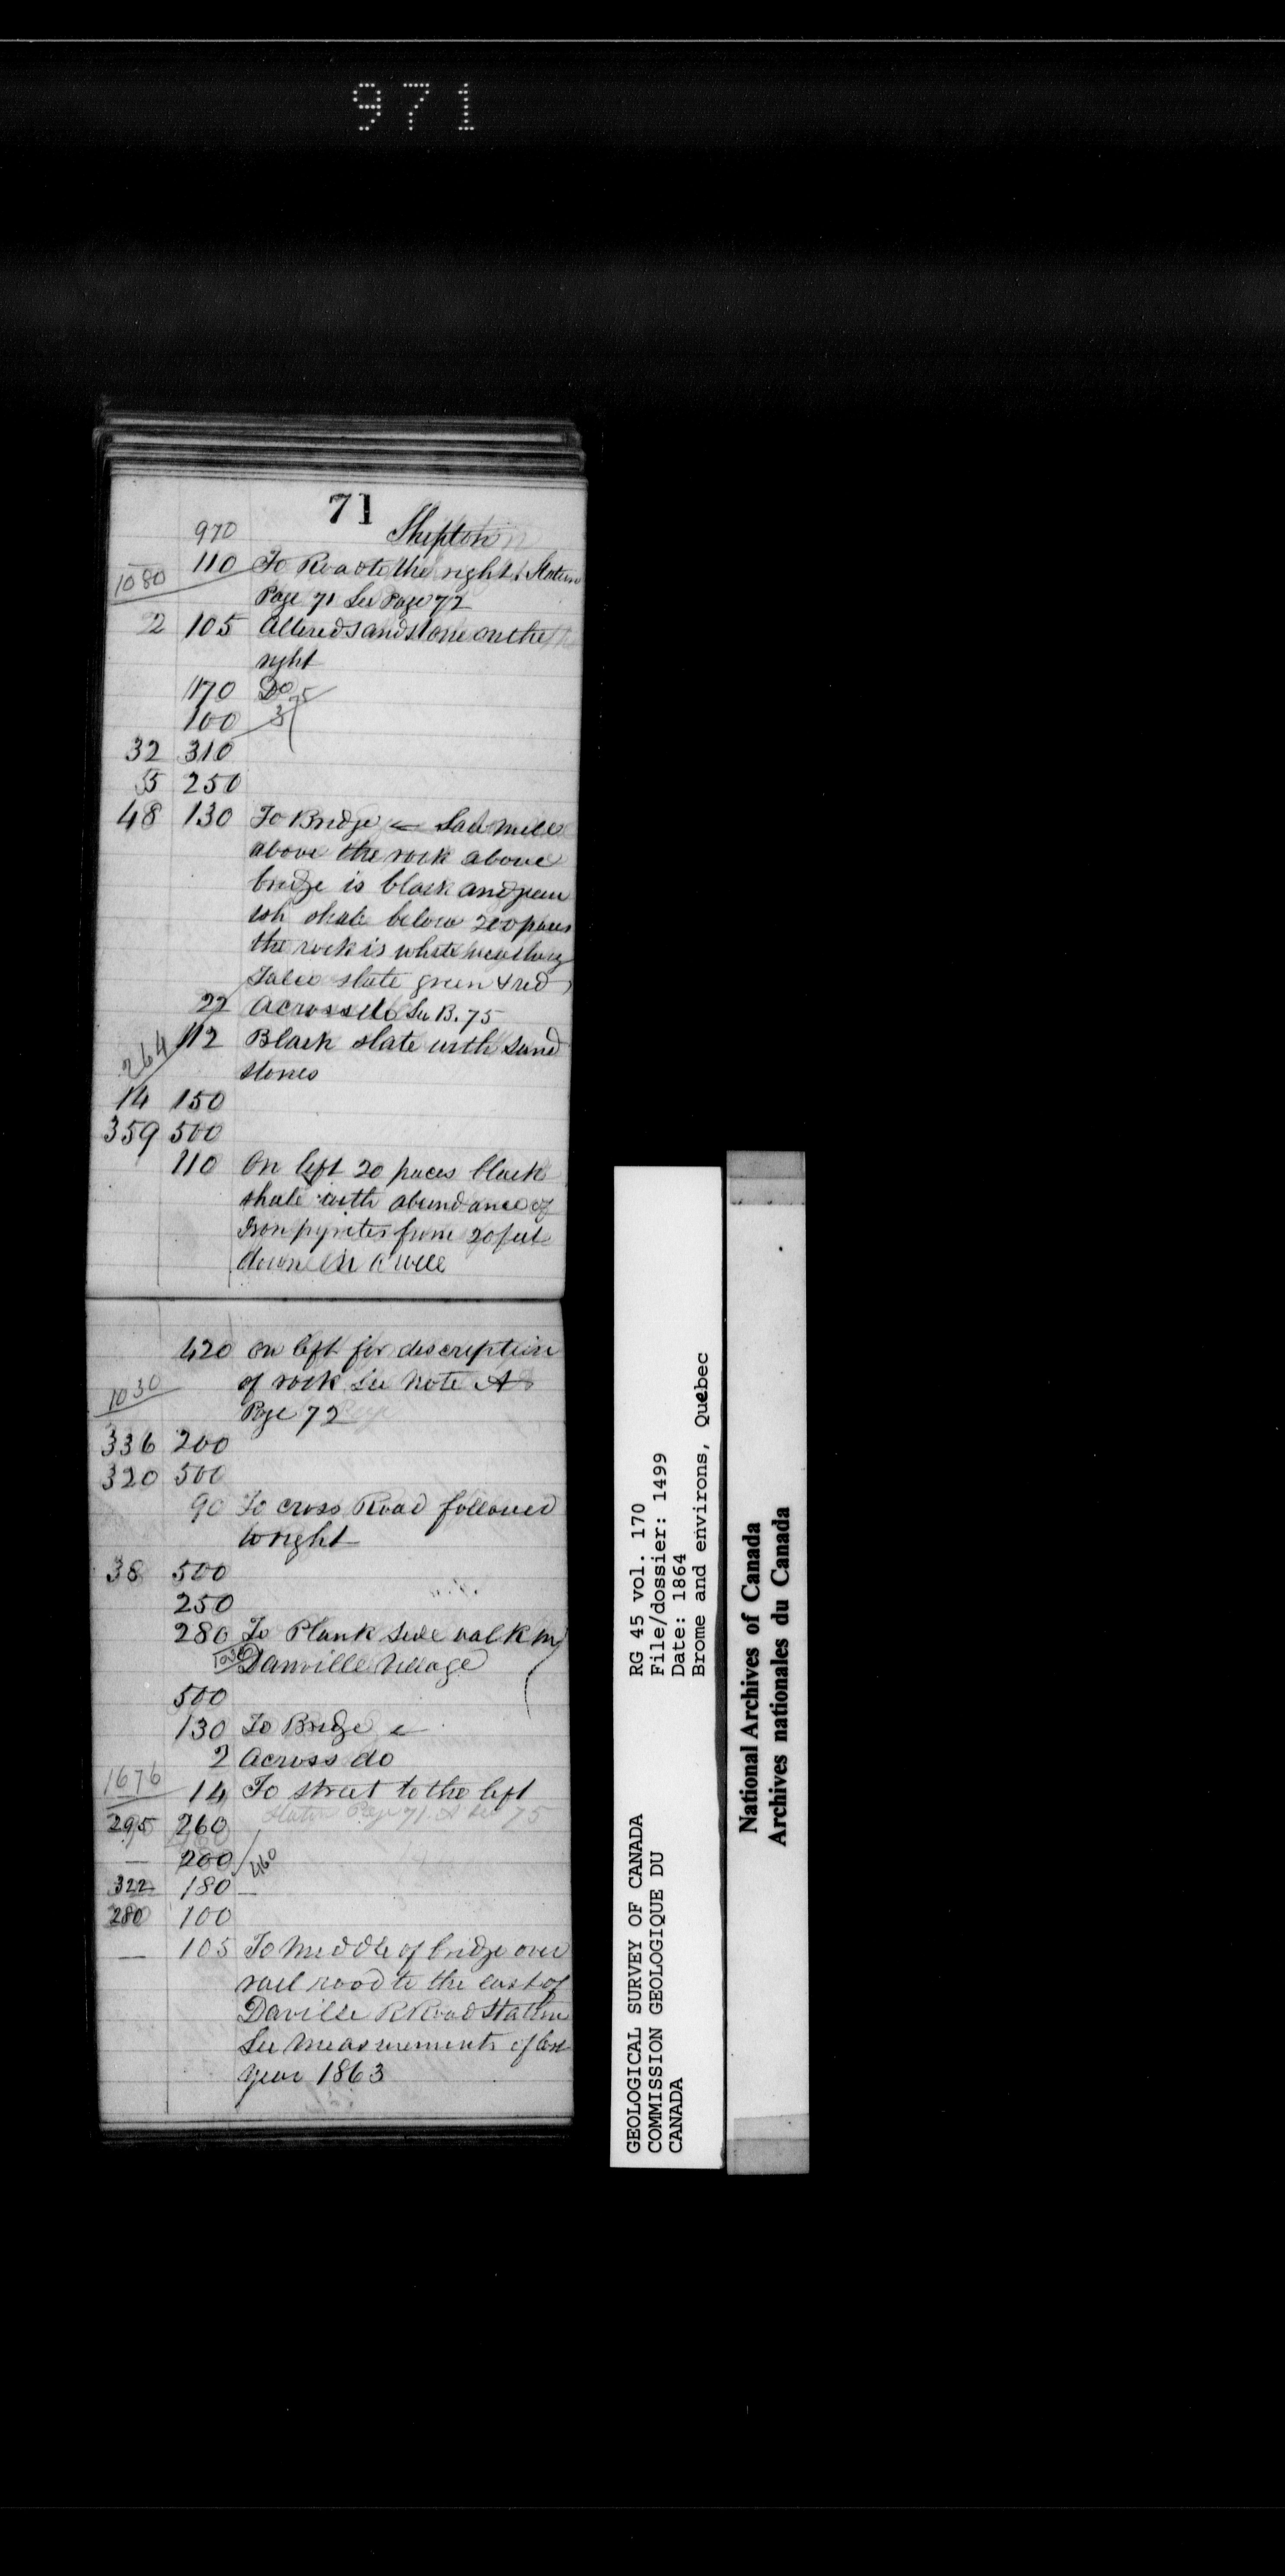 971
71
970 Shipton
110 To Road to the right Station
1080
Page 71 See Page 72
2 105 Altered sandstone on the
right
170 Do
100 375
32 310
55 250
48 130 To Bridge ← Saw mill
above the rock above
bridge is black and green
ish shale below 200 paces
the rock is white weathing
Talco slate green & red
22 Across do See B. 75
112 Black slate with sand
264 stones
14 150
359 500
110 On left 20 paces black
shale with abundance of
Iron pyrites from 20 feet
down in a well
420 On left for description
1030 of rock See Note A
Page 72
336 200
320 500
90 To cross Road followed
to right
38 500
250
280 To Plank side walk in
1030 Danville Village
500
130 To Bridge ←
2 Across do
1676 14 To street to the left
Station Page 71. A See 75
295 260
— 200 460
322 180 —
280 100
— 105 To middle of bridge over
rail road to the east of
Daville R Road Station
See measurements of last
year 1863
GEOLOGICAL SURVEY OF CANADA
COMMISSION GEOLOGIQUE DU
CANADA
RG 45 vol. 170
File/dossier: 1499
Date: 1864
Brome and environs, Quebec
National Archives of Canada
Archives nationales du Canada